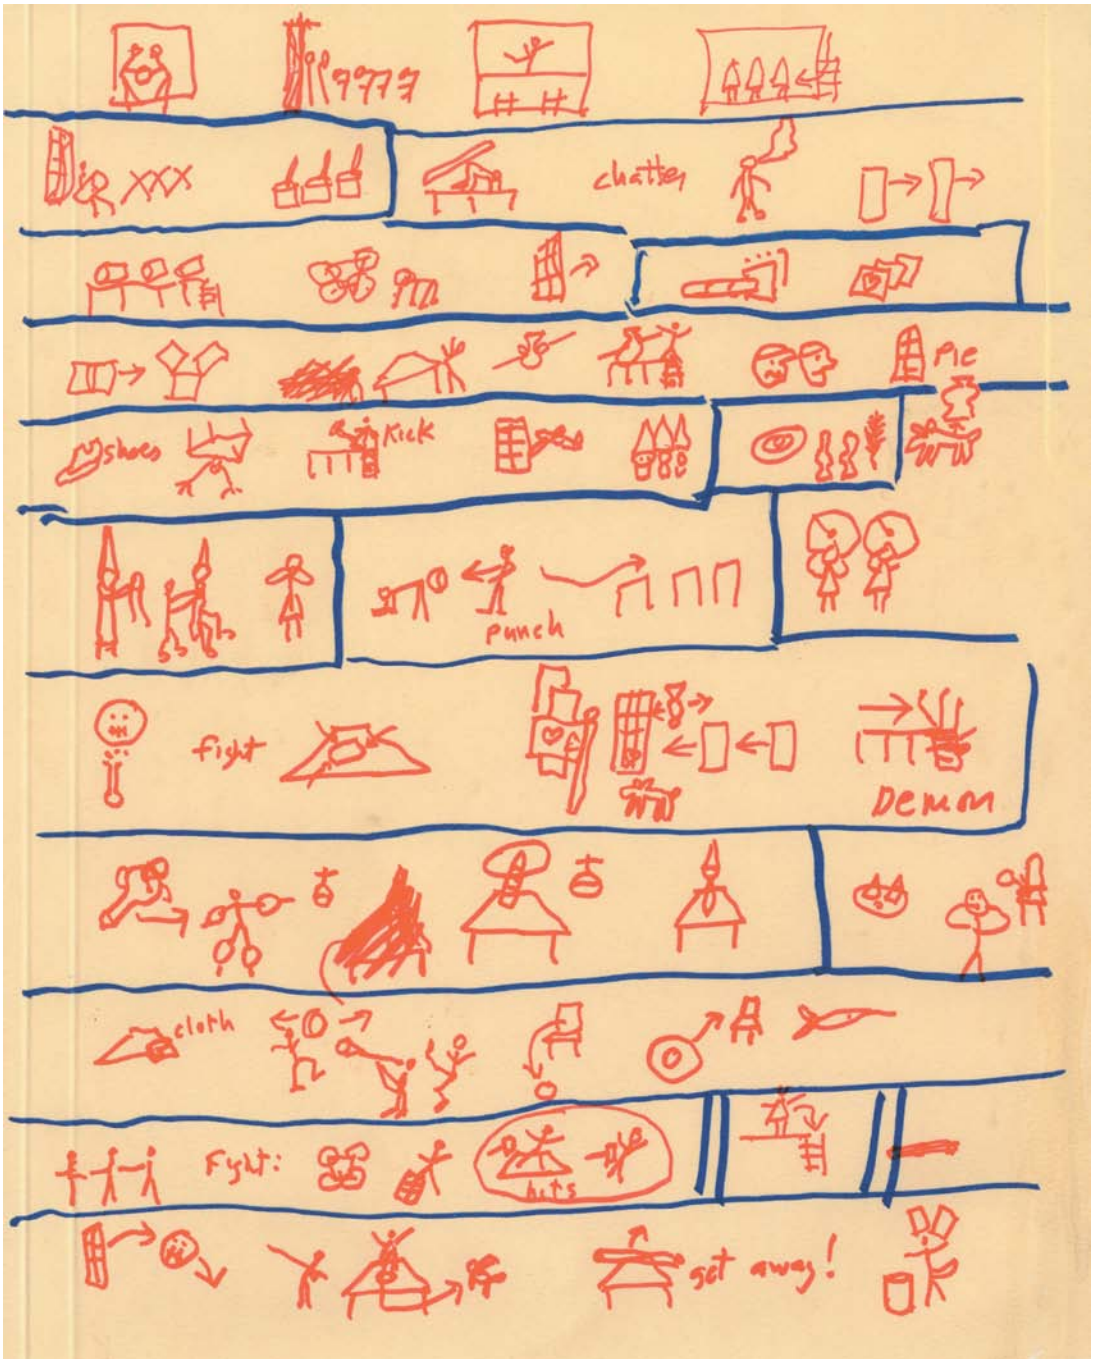 chatter
Pie
shoes
Kick
punch
fight
Demon
cloth
Fight:
hits
get away!